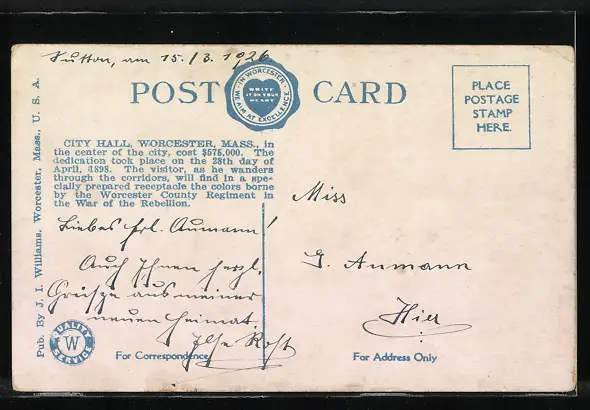 Sutton, am 15./3. 1926
POST CARD
IN WORCESTER
WRITE
IT ON YOUR
HEART
WE AIM AT EXCELLENCE
PLACE
POSTAGE
STAMP
HERE.
CITY HALL, WORCESTER, MASS., in
the center of the city, cost $575,000. The
dedication took place on the 28th day of
April, 1898. The visitor, as he wanders
through the corridors, will find in a spe-
cially prepared receptacle the colors borne
by the Worcester County Regiment in
the War of the Rebellion.
Pub. By J. I. Williams, Worcester, Mass., U. S. A.
Liebes Frl. Aumann!
Auch Ihnen herzl.
Grüsze aus meiner
neuen Heimat.
Ilse Rost
Miss
G. Aumann
Hier
QUALITY
W
SERVICE
For Correspondence
For Address Only